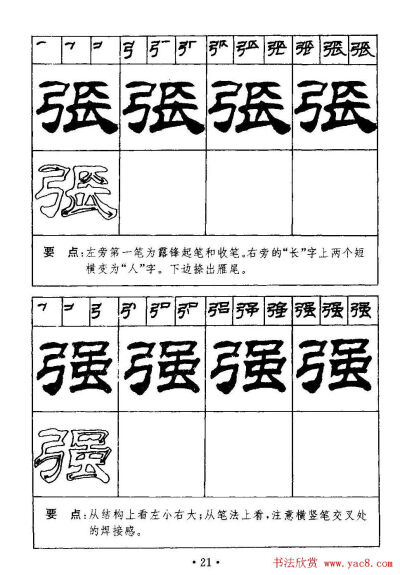 張 張 張 張
張
要 点:左旁第一笔为露锋起笔和收笔。右旁的“长”字上两个短
横变为“人”字。下边捺出雁尾。
强 强 强 强
强
要 点:从结构上看左小右大;从笔法上看,注意横竖笔交叉处
的焊接感。
·21·
书法欣赏
www.yac8.com